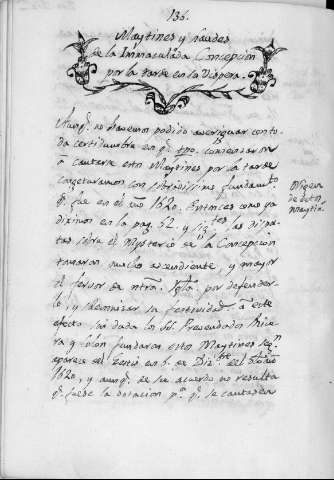 136.
Maytines y Laudes
de la Inmaculada Concepcion
por la tarde en la Vispera.
Aunq.^e no havemos podido averiguar con to-
da certidumbre en q.^e tpo. comenzaron
à cantarse estos Maytines por la tarde
congeturamos con solidissimo fundam.^to
q.^e fue en el año 1620. Entonces como ya
diximos en la pag. 52. y las dispu-
tas sobre el Mysterio de la Concepcion
tomaron mucho ascendiente, y mayor
el fervor de ntro. por defender-
lo, y solemnizar su festividad. à este
efecto sin duda los S.^es Prevendados
ra y fundaron estos Maytines seg.^n
aparece del en 6. de Diz.^bre del
1620, y aunq.^e de su acuerdo no resulta
q.^e fuese la dotacion p.^a q.^e se cantasen
Origen
de estos
Maytin.^s